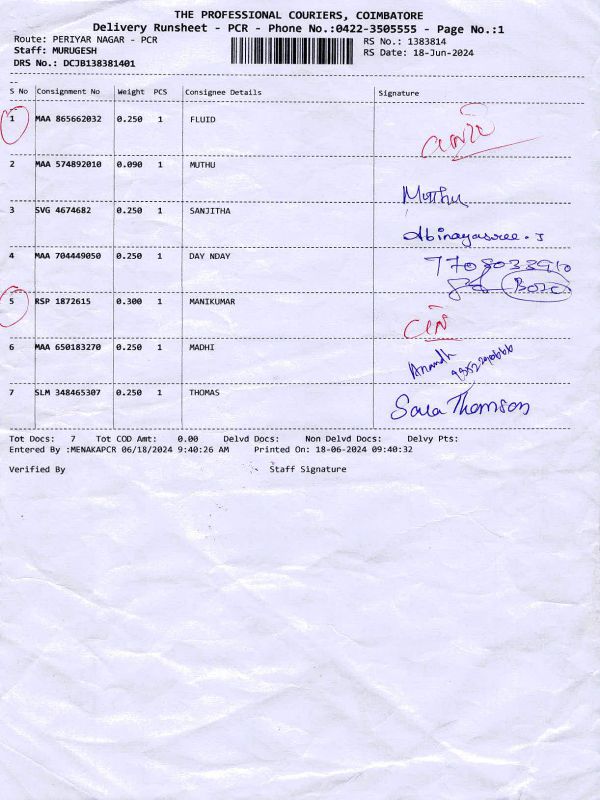 THE PROFESSIONAL COURIERS, COIMBATORE
Delivery Runsheet - PCR - Phone No.:0422-3505555 - Page No.:1
Route: PERIYAR NAGAR - PCR RS No.: 1383814
Staff: MURUGESH RS Date: 18-Jun-2024
DRS No.: DCJB138381401
S No Consignment No Weight PCS Consignee Details Signature
1 MAA 865662032 0.250 1 FLUID
2 MAA 574892010 0.090 1 MUTHU Muthu
3 SVG 4674682 0.250 1 SANJITHA Abinayasree. J
4 MAA 704449050 0.250 1 DAY NDAY
5 RSP 1872615 0.300 1 MANIKUMAR
6 MAA 650183270 0.250 1 MADHI Anandh
7 SLM 348465307 0.250 1 THOMAS Sara Thomson
Tot Docs: 7 Tot COD Amt: 0.00 Delvd Docs: Non Delvd Docs: Delvy Pts:
Entered By :MENAKAPCR 06/18/2024 9:40:26 AM Printed On: 18-06-2024 09:40:32
Verified By Staff Signature